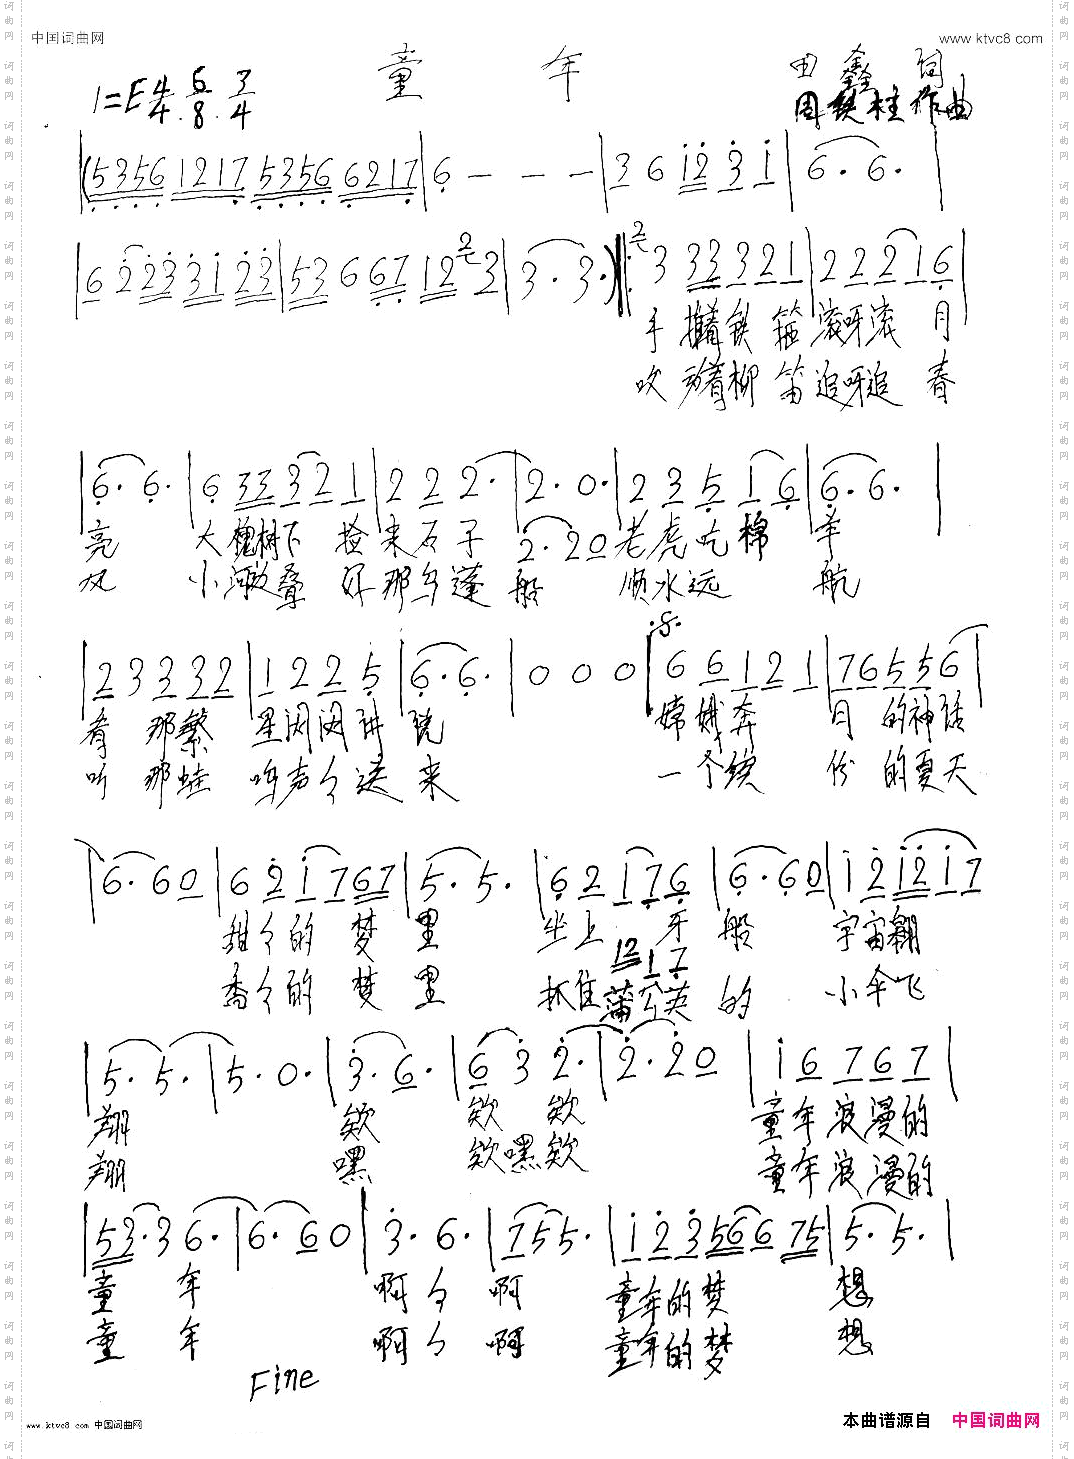 中国词曲网
www ktvc8 com
童年
1=E 4/4 6/8 3/4
田鑫词
周铁柱作曲
(5356 1217 5356 6217 | 6 - - - | 3 6 12 3 1 | 6· 6· |
6 2 23 31 23 | 53 6 67 12 3 | 3· 3·) 3 33 3 2 1 | 2 2 2 1 6 |
手推着铁箍滚呀滚 月
吹着柳笛追呀追 春
6· 6· | 6 33 3 2 1 | 2 2 2· | 2· 0· | 2 3 5 1 6 | 6· 6· |
亮 大槐树下 捡来石子 2· 20 老虎吃棉羊
风 小河边叠 乌蓬船 顺水远航
2 3 3 3 2 | 1 2 2 5 | 6· 6· | 0 0 0 | 6 6 1 2 1 | 7 6 5 5 6 |
看那繁星闪闪讲说 嫦娥奔月的神话
听那蛙声令送来 一个缤份的夏天
6· 60 | 6 2 1 7 67 | 5· 5· | 6 2 1 7 6 | 6· 60 | 1 2 12 1 7
甜令的梦里 坐上 牙船 宇宙翱
12 1 7
香令的梦里 抓住蒲公英的 小伞飞
5· 5· | 5· 0· | 3· 6· | 6 3 2· | 2· 20 | 1 6 7 6 7 |
翔 欸 欸 欸 童年浪漫的
翔 嘿 欸嘿欸 童年浪漫的
53· 3 6· | 6· 60 | 3· 6· | 7 5 5· | 1 2 3 56 6 75 | 5· 5· |
童年 啊令啊 童年的梦想
童年 啊令啊 童年的梦想
Fine
www.ktvc8 com 中国词曲网
本曲谱源自 中国词曲网